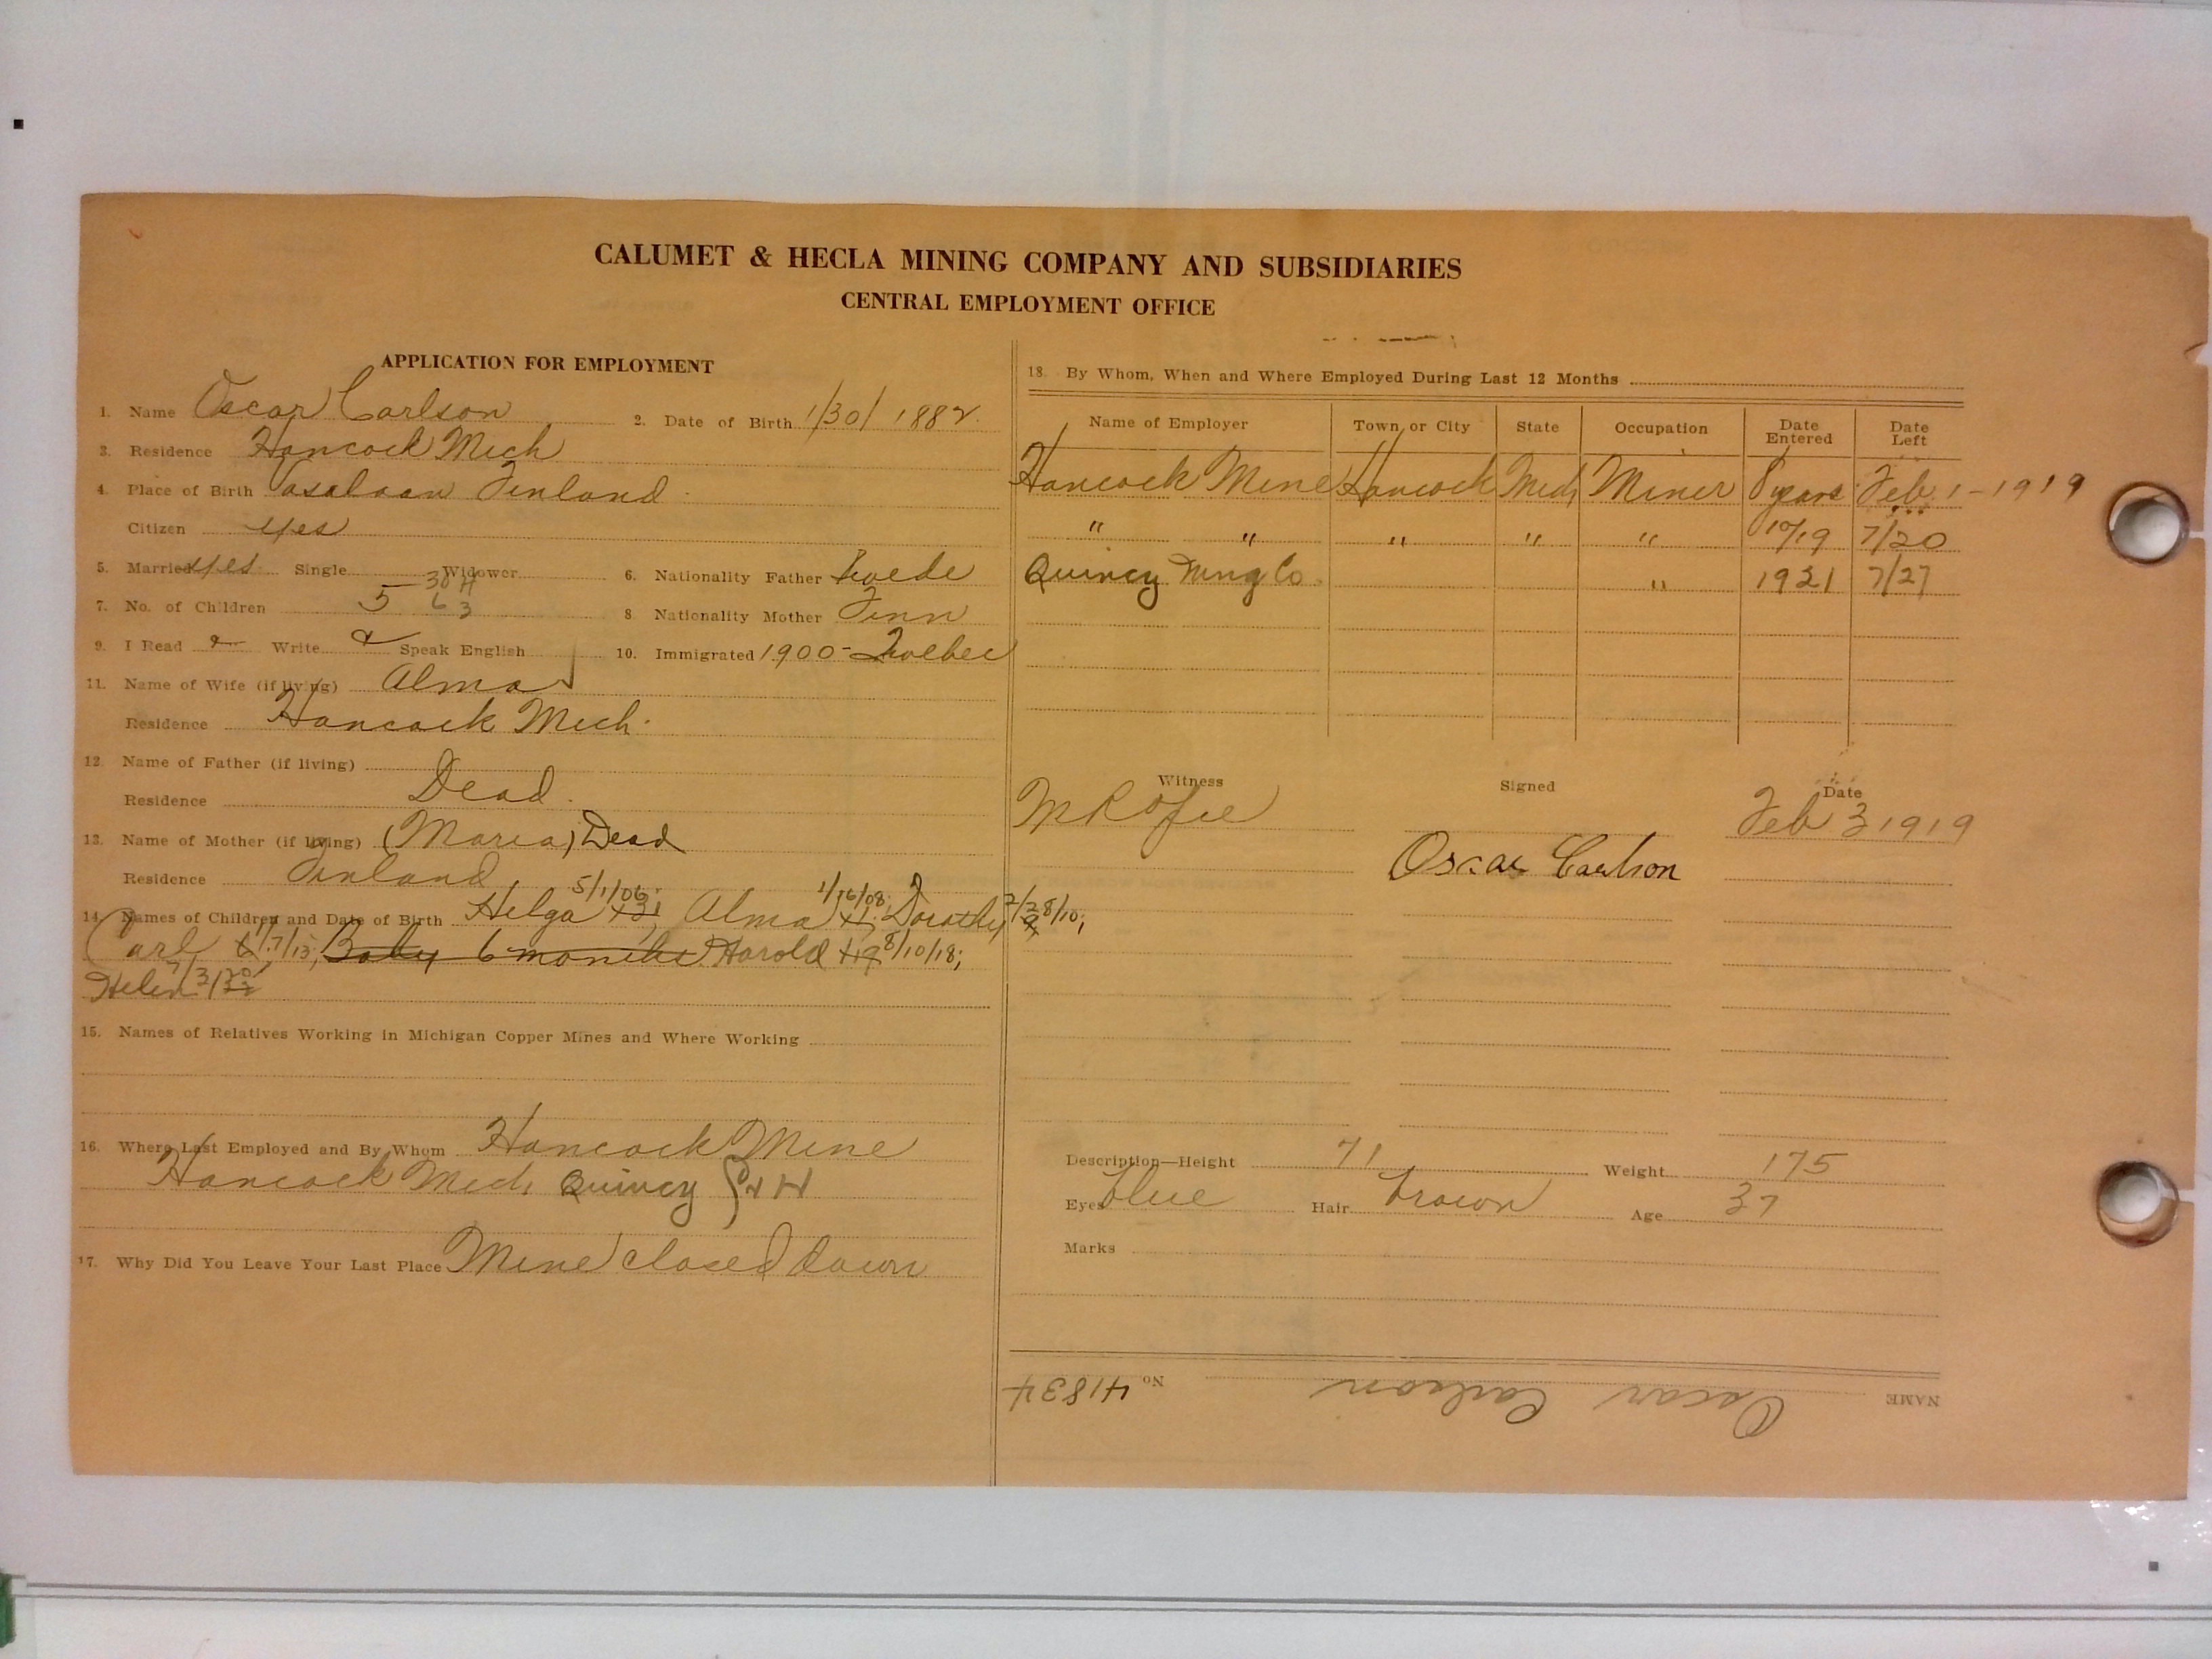 CALUMET & HECLA MINING COMPANY AND SUBSIDIARIES
CENTRAL EMPLOYMENT OFFICE
APPLICATION FOR EMPLOYMENT
1. Name Oscar Carlson 2. Date of Birth 1/30/1882
3. Residence Hancock Mich
4. Place of Birth Finland
Citizen yes
5. Married yes Single Widower 6. Nationality Father Swede
7. No. of Children 5 6 3 8 Nationality Mother Finn
9. I Read Write Speak English 10. Immigrated 1900- Quebec
11. Name of Wife (if living) Alma
Residence Hancock Mich.
12. Name of Father (if living)
Residence Dead
13. Name of Mother (if living) (Maria) Dead
Residence Finland
14. Names of Children and Date of Birth Helga 5/1/06; Alma 1/16/08; Dorothy 2/28/10;
Carl 1/7/13; Baby 6 months Harold 8/10/18;
Helen
15. Names of Relatives Working in Michigan Copper Mines and Where Working
16. Where Last Employed and By Whom Hancock Mine
Hancock Mich Quincy
17. Why Did You Leave Your Last Place Mine closed down
18. By Whom, When and Where Employed During Last 12 Months
Name of Employer Town or City State Occupation Date Entered Date Left
Hancock Mine Hancock Mich Miner 8 years Feb 1-1919
" " " " " 10/19 7/20
Quincy Mng Co. " 1921 7/27
Witness Signed Date
Feb 3 1919
Oscar Carlson
Description—Height 71 Weight 175
Eyes blue Hair brown Age 37
Marks
NAME Oscar Carlson No. 41834